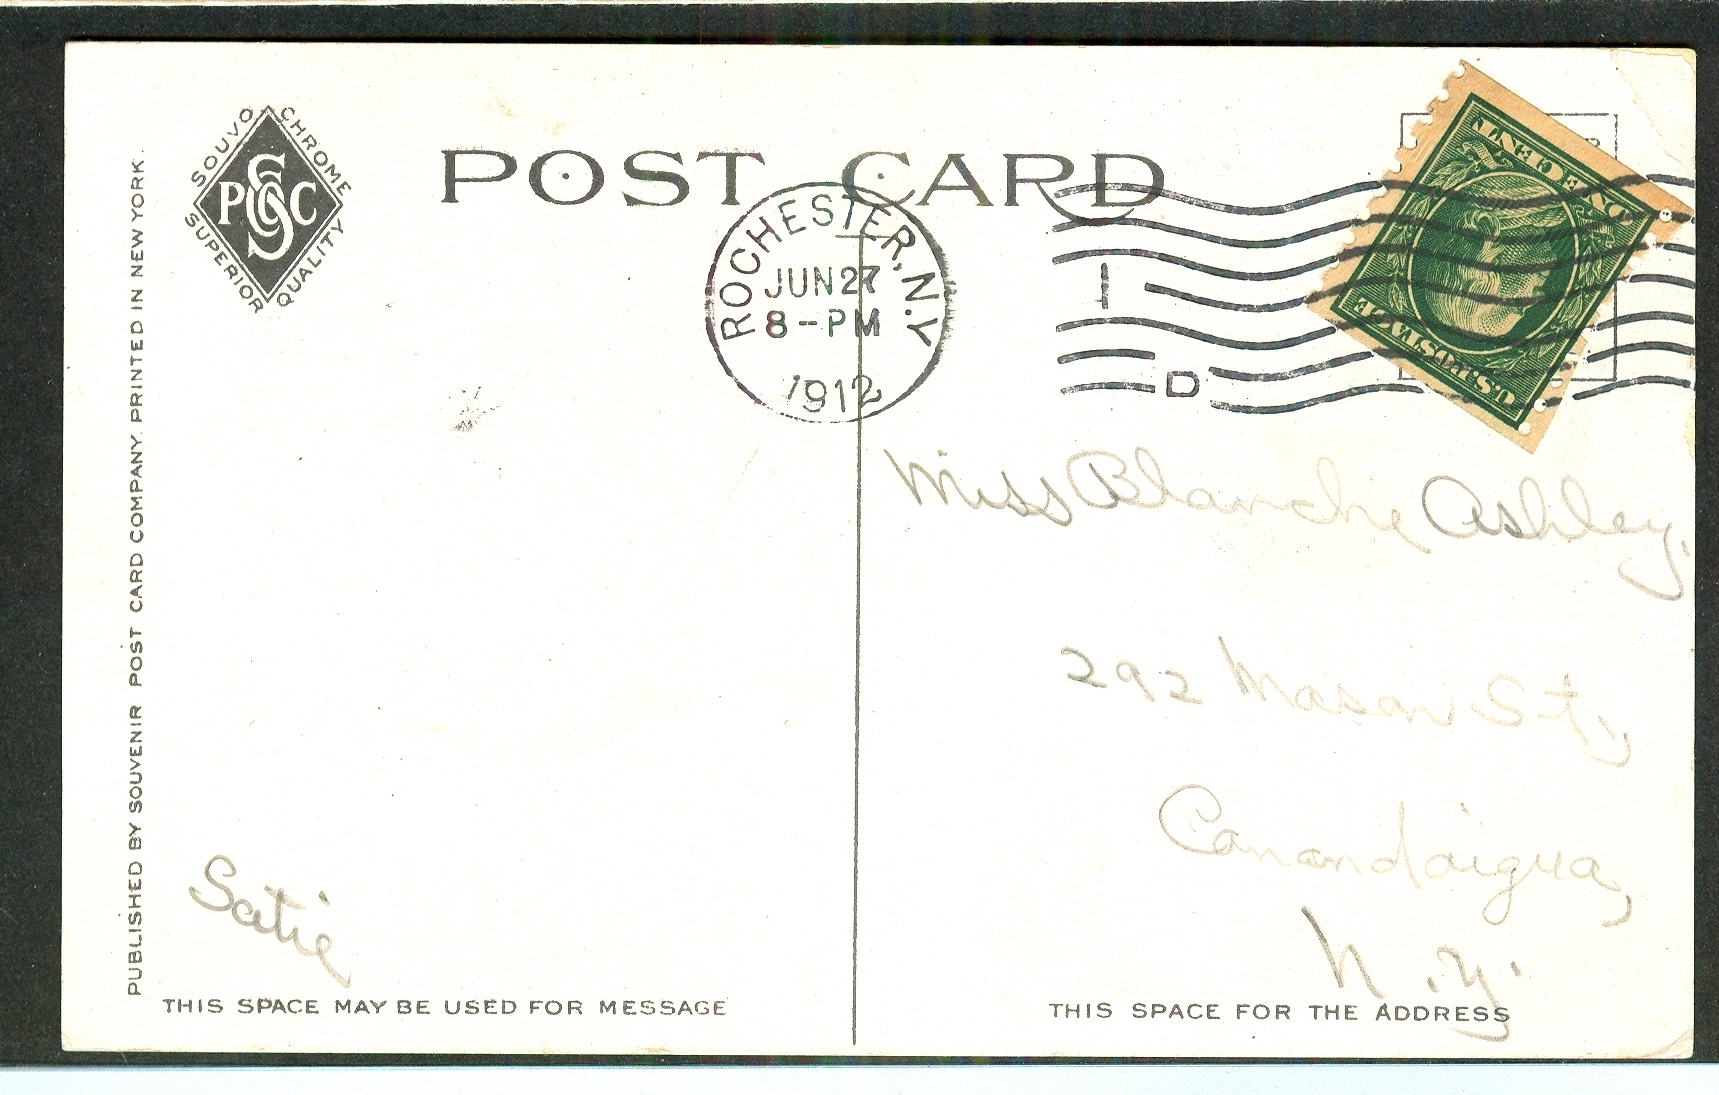 SOUVO CHROME
PSC Co
SUPERIOR QUALITY
POST CARD
ROCHESTER, N.Y.
JUN 27
8 - PM
1912
I
D
ONE CENT
U.S. POSTAGE
PUBLISHED BY SOUVENIR POST CARD COMPANY. PRINTED IN NEW YORK.
Miss Blanche Ashley,
292 Mason St.,
Canandaigua,
N.Y.
Satie
THIS SPACE MAY BE USED FOR MESSAGE
THIS SPACE FOR THE ADDRESS